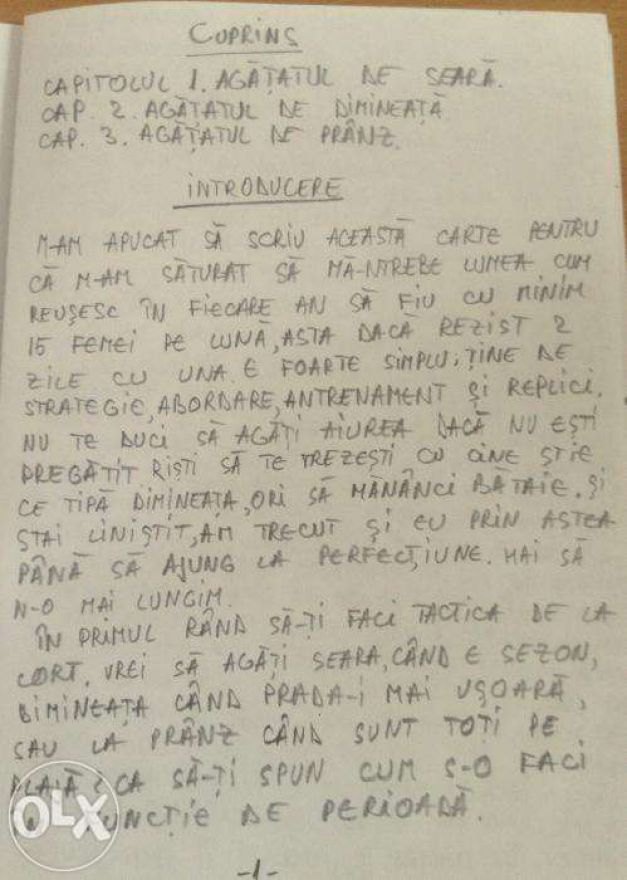 CUPRINS
CAPITOLUL 1. AGĂȚATUL DE SEARĂ.
CAP. 2. AGĂȚATUL DE DIMINEAȚĂ
CAP. 3. AGĂȚATUL DE PRÂNZ.
INTRODUCERE
M-AM APUCAT SĂ SCRIU ACEASTĂ CARTE PENTRU
CĂ M-AM SĂTURAT SĂ MĂ-NTREBE LUMEA CUM
REUȘESC ÎN FIECARE AN SĂ FIU CU MINIM
15 FEMEI PE LUNĂ, ASTA DACĂ REZIST 2
ZILE CU UNA. E FOARTE SIMPLU; ȚINE DE
STRATEGIE, ABORDARE, ANTRENAMENT ȘI REPLICI.
NU TE DUCI SĂ AGĂȚI AIUREA DACĂ NU EȘTI
PREGĂTIT RIȘTI SĂ TE TREZEȘTI CU CINE ȘTIE
CE TIPĂ DIMINEAȚA, ORI SĂ MĂNÂNCI BĂTAIE. ȘI
STAI LINIȘTIT, AM TRECUT ȘI EU PRIN ASTEA
PÂNĂ SĂ AJUNG LA PERFECȚIUNE. HAI SĂ
N-O MAI LUNGIM.
ÎN PRIMUL RÂND SĂ-ȚI FACI TACTICA DE LA
CORT. VREI SĂ AGĂȚI SEARA, CÂND E SEZON,
DIMINEAȚA CÂND PRADA-I MAI UȘOARĂ,
SAU LA PRÂNZ CÂND SUNT TOȚI PE
PLAJĂ; CA SĂ-ȚI SPUN CUM S-O FACI
FUNCȚIE DE PERIOADĂ.
OLX
-1-